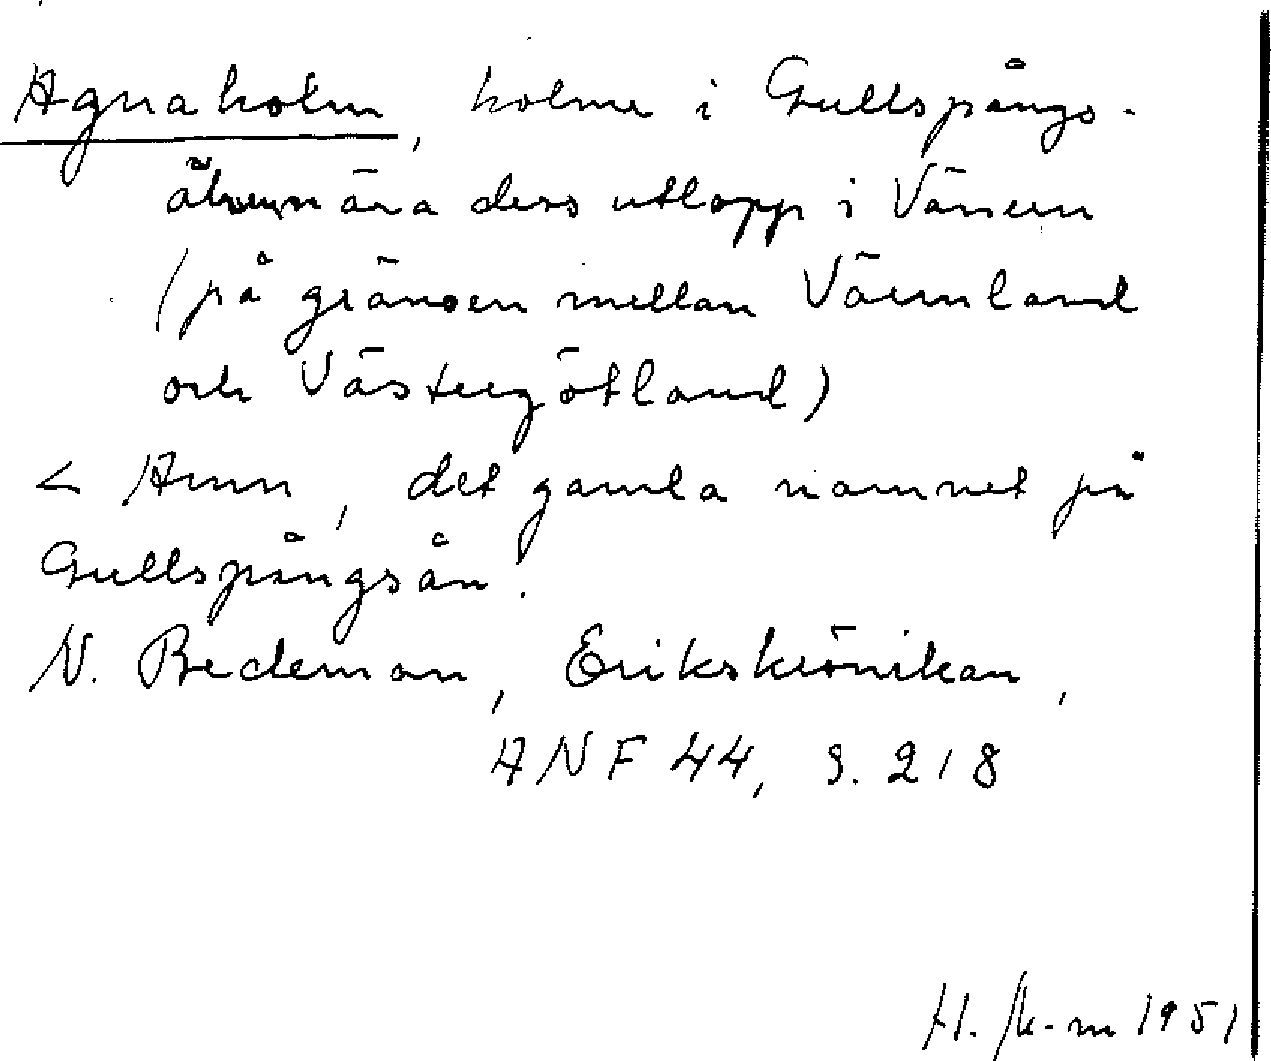 Agnaholm, holme i Gullspångs-
älven nära dess utlopp i Vänern
(på gränsen mellan Värmland
och Västergötland)
< Amn, det gamla namnet på
Gullspångsån.
N. Bedeman, Erikskrönikan,
ANF 44, s. 218
H. 1951